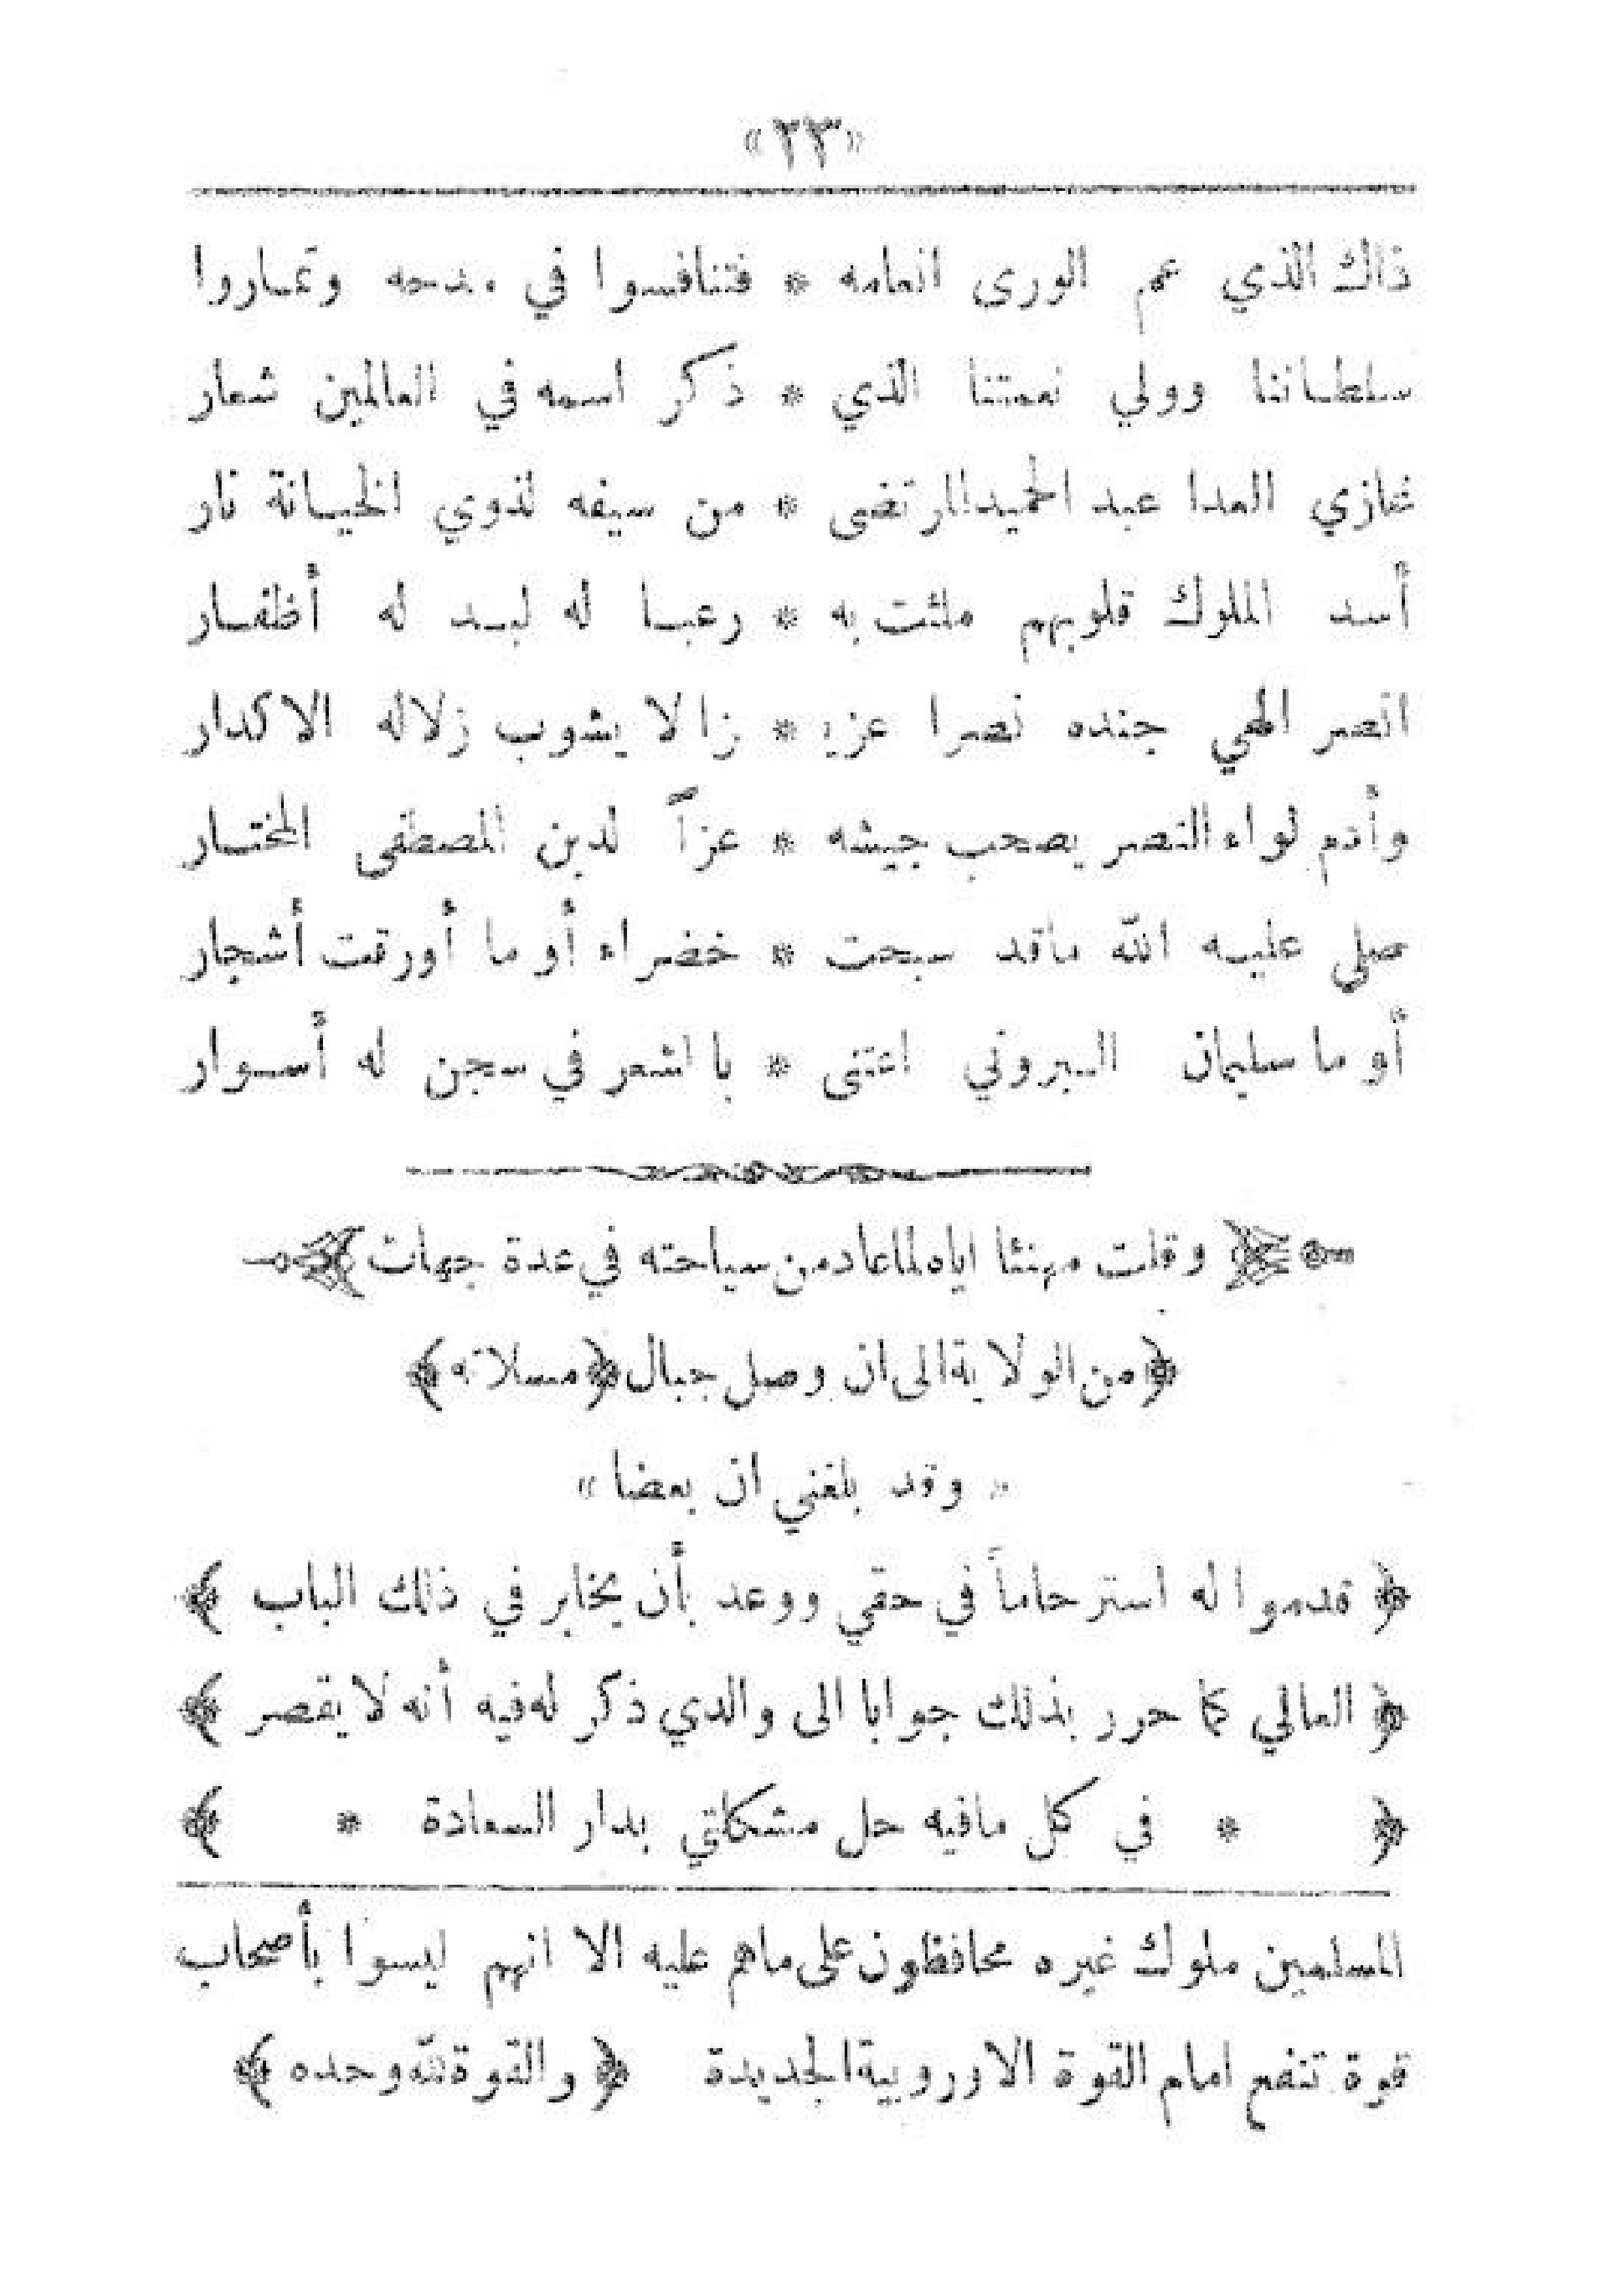 «٢٣»
ذاك الذي عم الورى انعامه * فتنافسوا في مدحه وتماروا
سلطاننا وولي نعمتنا الذي * ذكر اسمه في العالمين شعار
غازي العدا عبد الحميد المرتضى * من سيفه لذوي الخيانة نار
أسد الملوك قلوبهم ملئت به * رعبا له لبد له أظفار
انصر الهي جنده نصرا عزيـ * ـزا لا يشوب زلاله الاكدار
وأدم لواء النصر يصحب جيشه * عزاً لدين المصطفى المختار
صلى عليه الله ماقد سبحت * خضراء أو ما أورقت أشجار
أو ما سليمان البروني اعتنى * با لشعر في سجن له أسوار
﴿ وقلت مهنئا اياه لما عاد من سياحته في عدة جهات ﴾
﴿ من الولاية الى ان وصل جبال ﴿ مسلاته ﴾
« وقد بلغني ان بعضا »
﴿ قدموا له استرحاماً في حقي ووعد بأن يخابر في ذلك الباب ﴾
﴿ العالي كما حرر بذلك جوابا الى والدي ذكر له فيه أنه لا يقصر ﴾
﴿ * في كل مافيه حل مشكلتي بدار السعادة * ﴾
المسلمين ملوك غيره محافظون على ماهم عليه الا انهم ليسوا بأصحاب
قوة تنفع امام القوة الاوروبية الجديدة ﴿ والقوة لله وحده ﴾